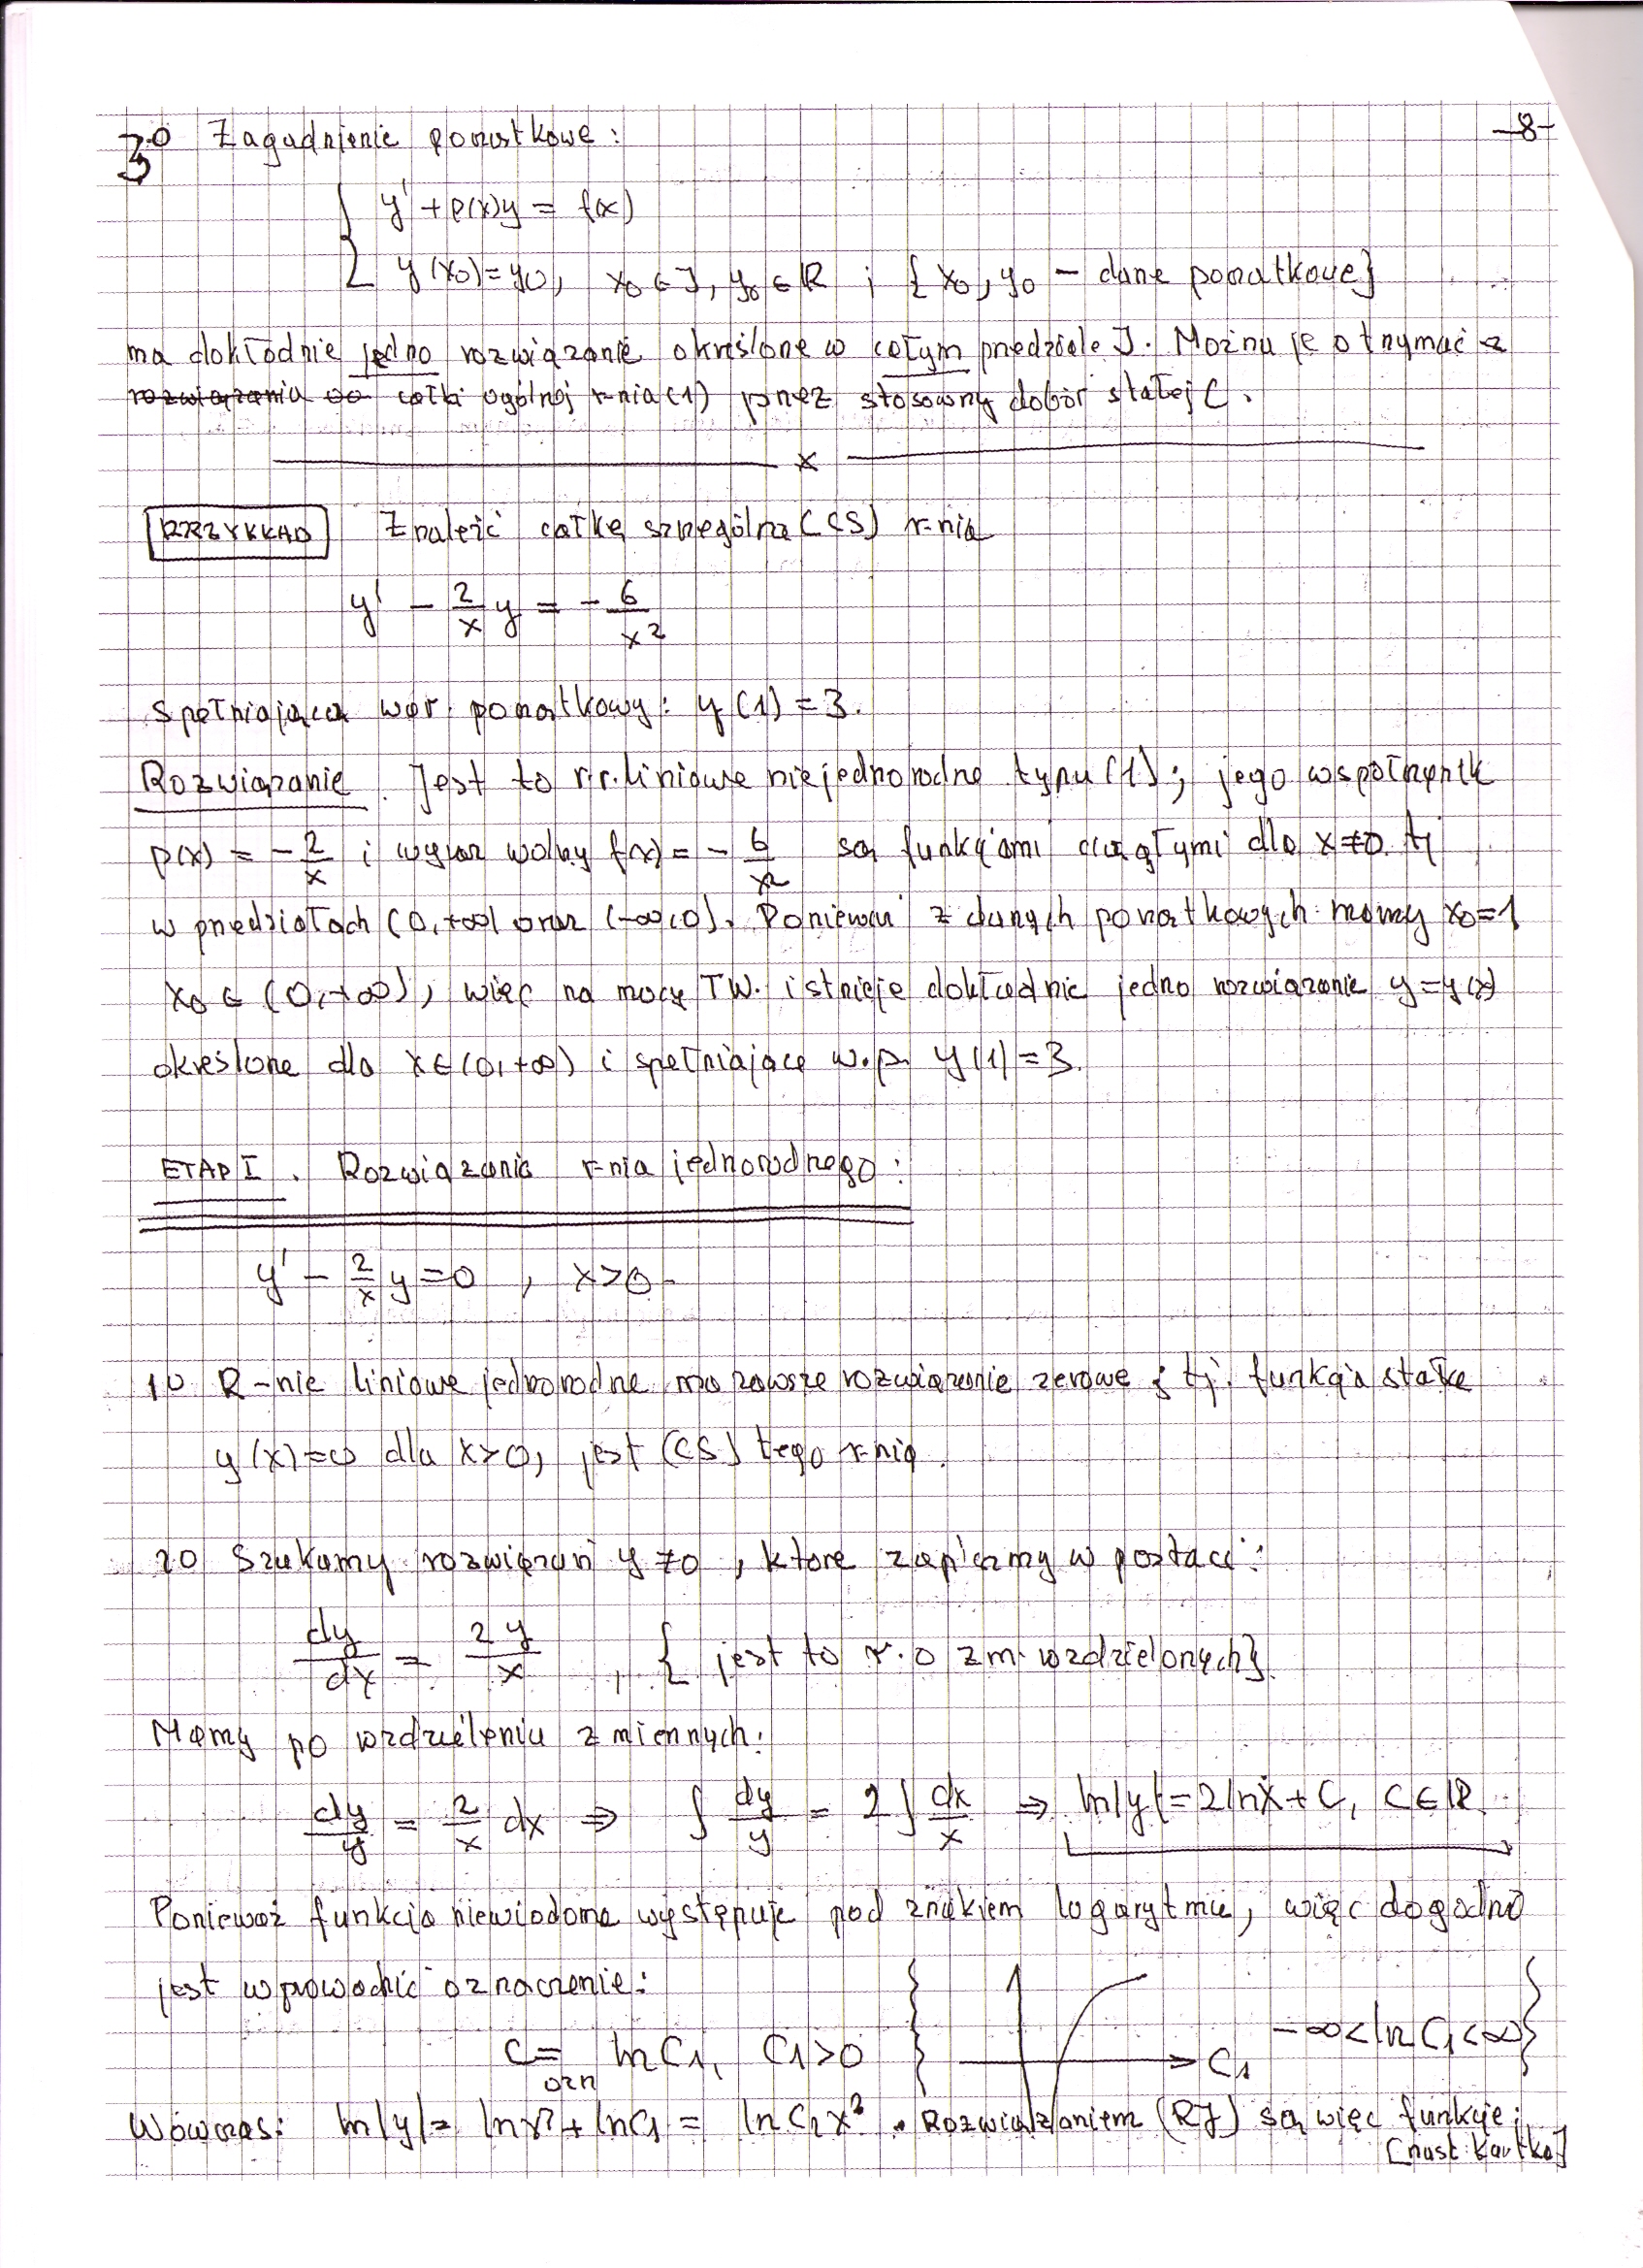 3° Zagadnienie początkowe: -8-
{ y' + p(x)y = f(x)
y(x0) = y0, x0 ∈ J, y0 ∈ R ; {x0, y0 - dane początkowe}
ma dokładnie jedno rozwiązanie określone w całym przedziale J. Można je otrzymać z
rozwiązania całki ogólnej r-nia (1) przez stosowny dobór stałej C.
x
PRZYKŁAD Znaleźć całkę szczególną (CS) r-nia
y' - 2/x y = - 6/x²
spełniającą war. początkowy: y(1) = 3.
Rozwiązanie. Jest to r.r. liniowe niejednorodne typu (1); jego współczynnik
p(x) = - 2/x i wyraz wolny f(x) = - 6/x² są funkcjami ciągłymi dla x≠0. tj
w przedziałach (0,+∞) oraz (-∞,0). Ponieważ z danych początkowych mamy x0=1
x0 ∈ (0,+∞), więc na mocy TW. istnieje dokładnie jedno rozwiązanie y=y(x)
określone dla x∈(0,+∞) i spełniające w.p. y(1)=3.
ETAP I. Rozwiązanie r-nia jednorodnego:
y' - 2/x y = 0 , x>0
1° R-nie liniowe jednorodne ma zawsze rozwiązanie zerowe ; tj. funkcja stała
y(x)=0 dla x>0, jest (CS) tego r-nia.
2° Szukamy rozwiązań y≠0, które zapiszemy w postaci:
dy/dx = 2y/x , { jest to r. o zm. rozdzielonych}.
Mamy po rozdzieleniu zmiennych:
dy/y = 2/x dx ⇒ ∫ dy/y = 2∫ dx/x ⇒ ln|y| = 2lnx + C, C∈R
Ponieważ funkcja niewiadoma występuje pod znakiem logarytmu, więc dogodnie
jest wprowadzić oznaczenie:
C = ozn ln C1, C1>0 { C1 -∞<ln C1<∞}
Wówczas: ln|y| = lnx² + lnC1 = ln C1x². Rozwiązaniem (RJ) są więc funkcje:
[nast. kartka]